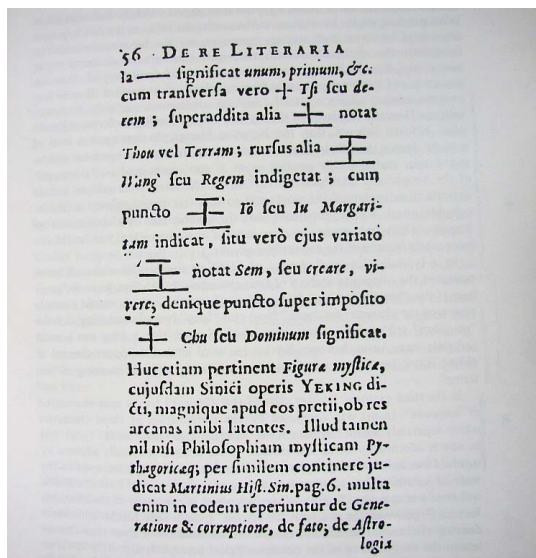 56 · DE RE LITERARIA
la —— ſignificat unum, primum, &c.
cum tranſverſa vero 十 Tſi ſeu de-
cem ; ſuperaddita alia 土 notat
Thou vel Terram ; rurſus alia 王
Wang ſeu Regem indigetat ; cum
puncto 玉 Iō ſeu Iu Margari-
tam indicat, ſitu verò ejus variatò
生 notat Sem, ſeu creare, vi-
vere; denique puncto ſuper impoſito
主 Chu ſeu Dominum ſignificat.
Huc etiam pertinent Figuræ myſticæ,
cujuſdam Sinici operis YEKING di-
cti, magnique apud eos pretii, ob res
arcanas inibi latentes. Illud tamen
nil niſi Philoſophiam myſticam Py-
thagoricæq; per ſimilem continere ju-
dicat Martinius Hiſt. Sin. pag. 6. multa
enim in eodem reperiuntur de Gene-
ratione & corruptione, de fato; de Aſtro-
logia